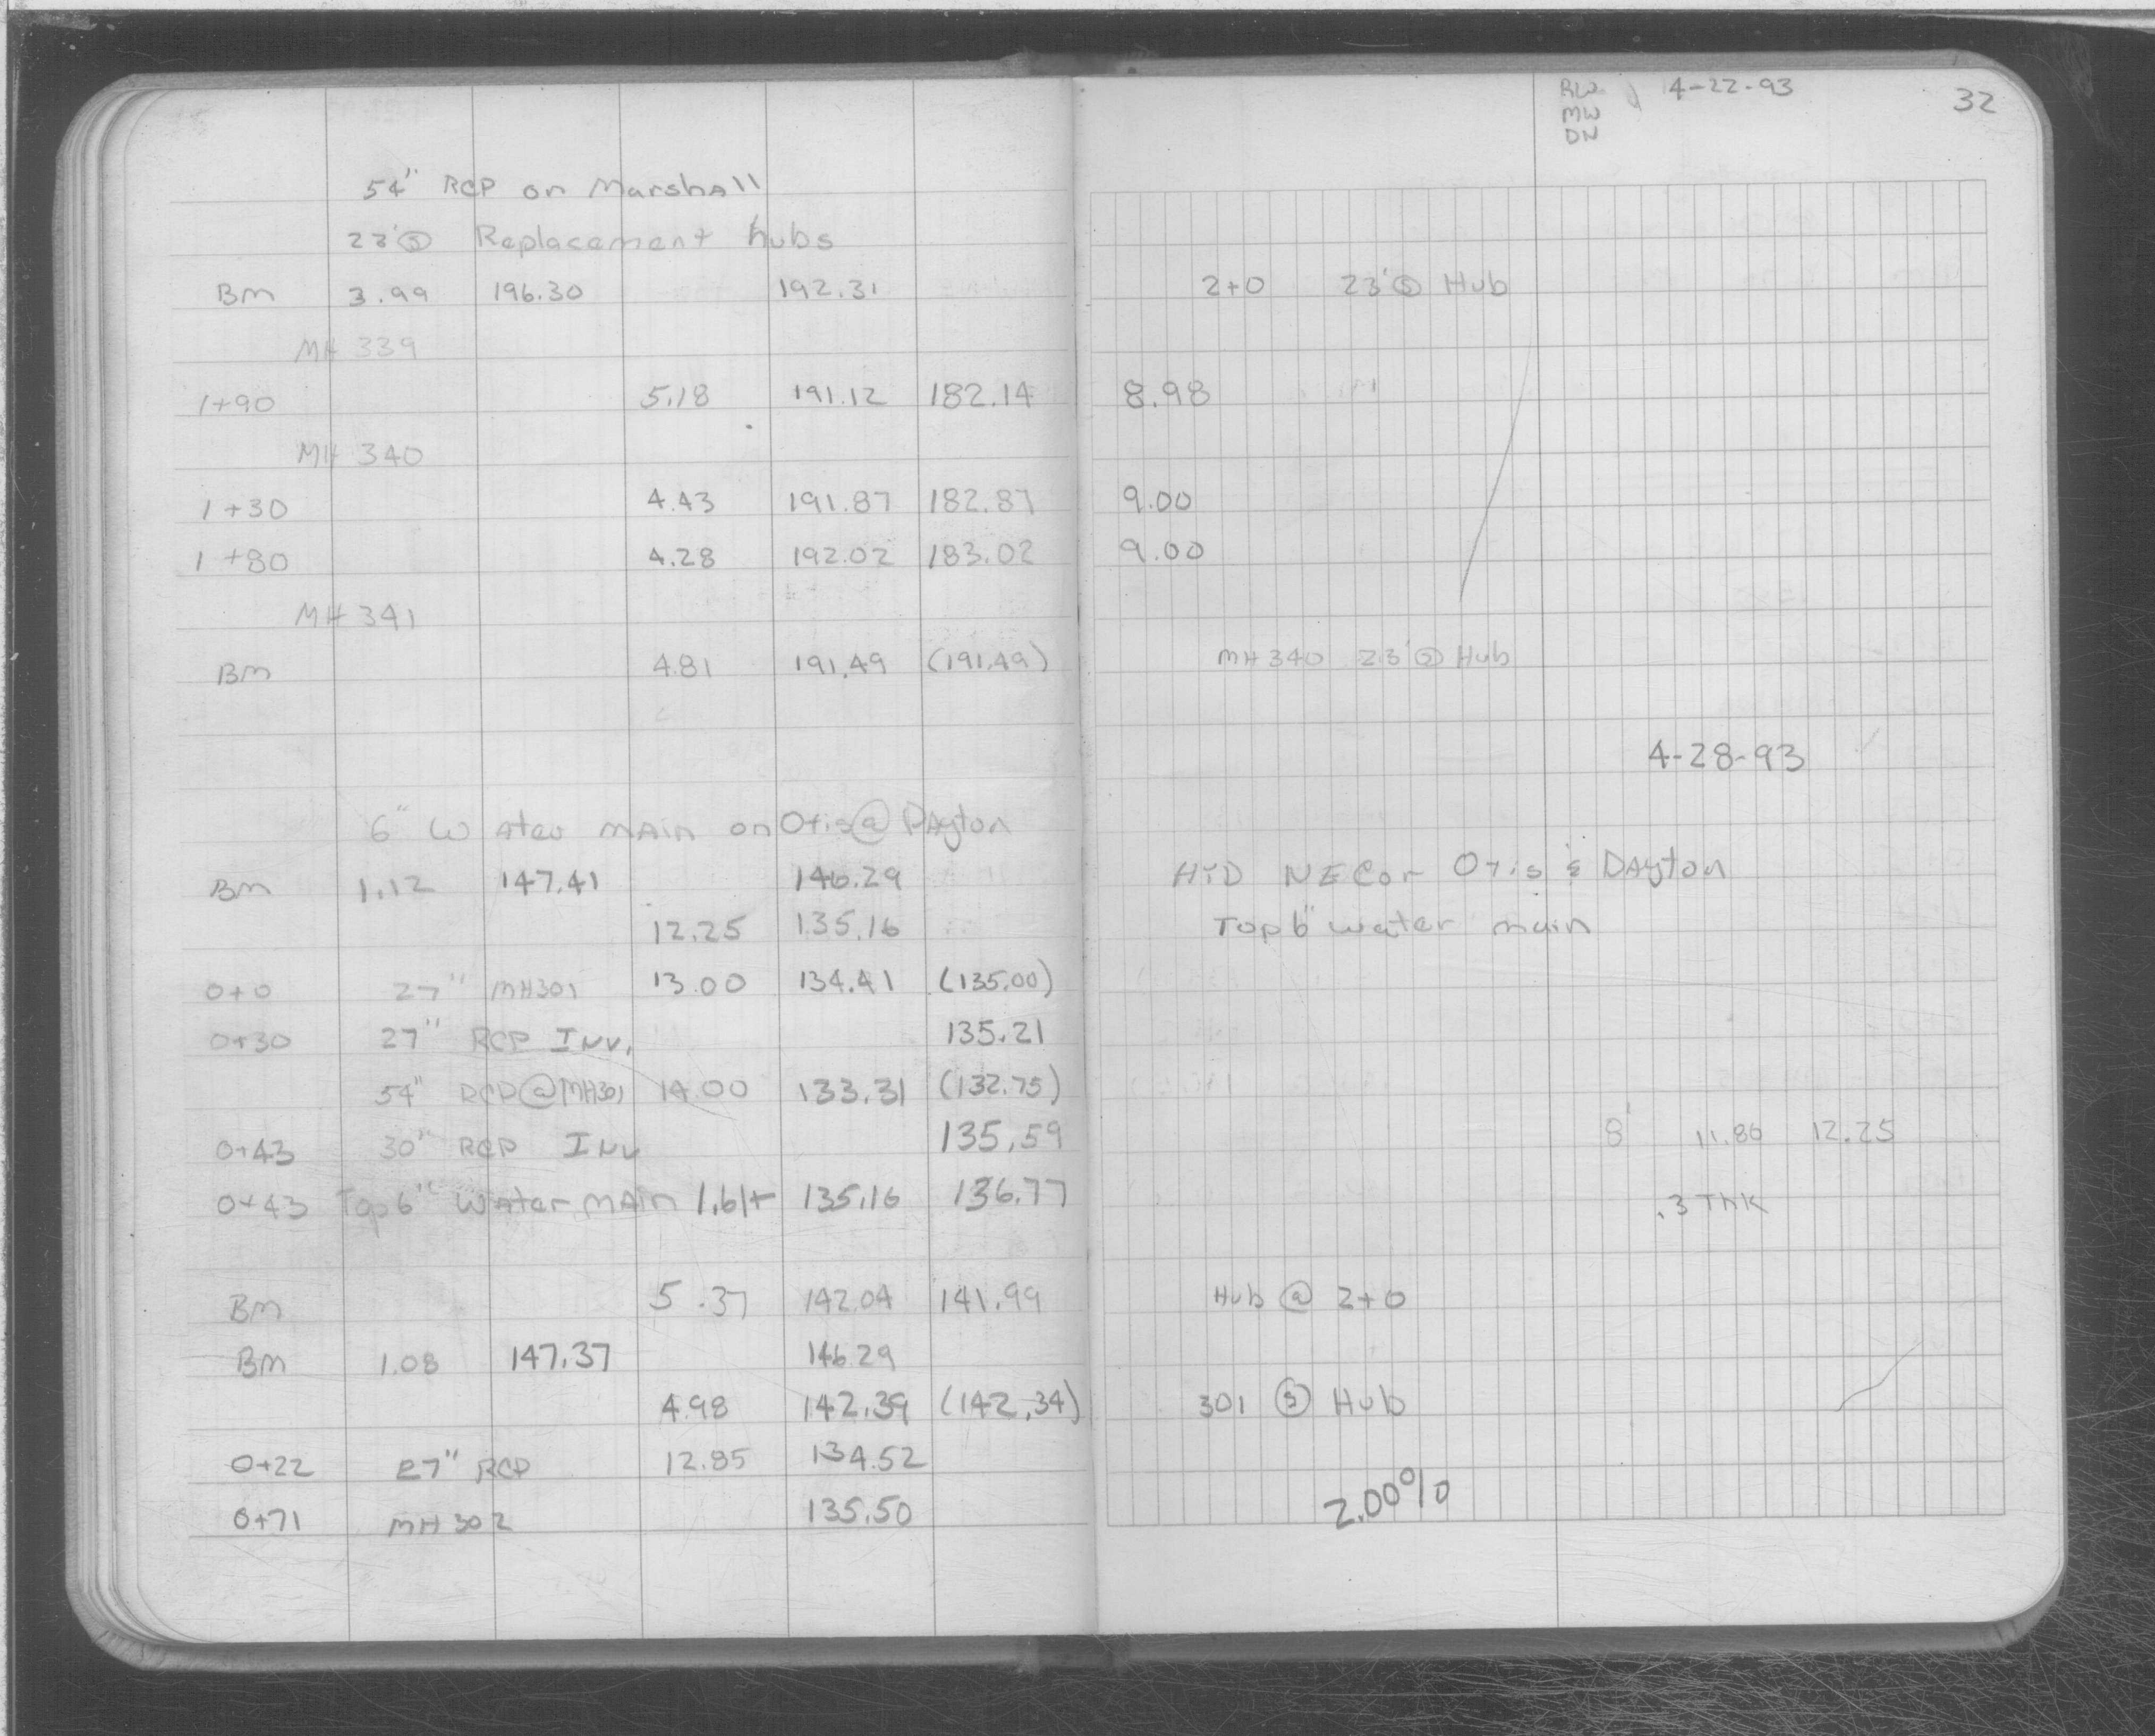 RW 4-22-93 32
MW
DN
54" RCP on Marshall
23' Ⓢ Replacement hubs
BM 3.99 196.30 192.31 2+0 23' Ⓢ Hub
MH 339
1+90 5.18 191.12 182.14 8.98
MH 340
1+30 4.43 191.87 182.87 9.00
1+80 4.28 192.02 183.02 9.00
MH 341
BM 4.81 191.49 (191.49) MH 340 23' Ⓢ Hub
4-28-93
6" Water MAin on Otis @ DAyton
BM 1.12 147.41 146.29 HYD NE Cor Otis & DAyton
12.25 135.16 Top 6" water main
0+0 27" MH301 13.00 134.41 (135.00)
0+30 27" RCP Inv. 135.21
54" RCP @ MH301 14.00 133.31 (132.75)
0+43 30" RCP Inv 135.59 8' 11.86 12.25
0+43 Top 6" Water MAin 1.61+ 135.16 136.77 .3 THK
BM 5.37 142.04 141.99 Hub @ 2+0
BM 1.08 147.37 146.29
4.98 142.39 (142.34) 301 Ⓢ Hub
0+22 27" RCP 12.85 134.52
0+71 MH 302 135.50 2.00%